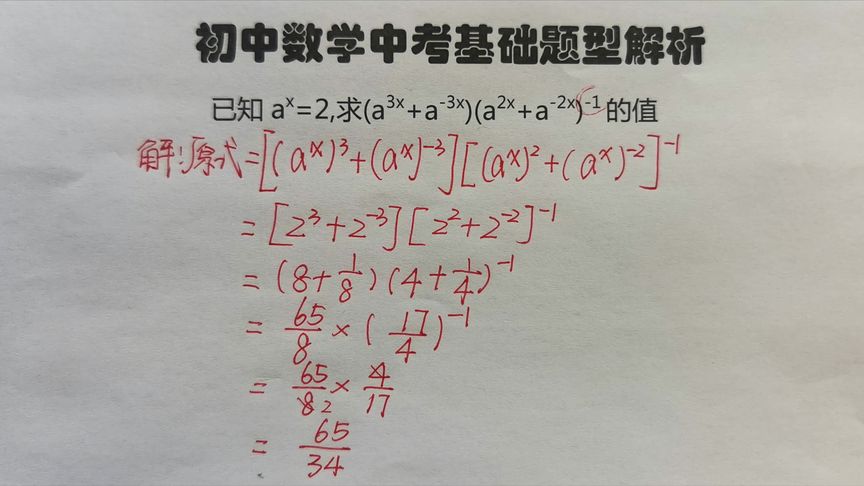 初中数学中考基础题型解析
已知 aˣ=2,求(a³ˣ+a⁻³ˣ)(a²ˣ+a⁻²ˣ)⁻¹ 的值
解:原式=[(aˣ)³+(aˣ)⁻³][(aˣ)²+(aˣ)⁻²]⁻¹
=[2³+2⁻³][2²+2⁻²]⁻¹
=(8+1/8)(4+1/4)⁻¹
=65/8×(17/4)⁻¹
=65/8 2×4/17
=65/34